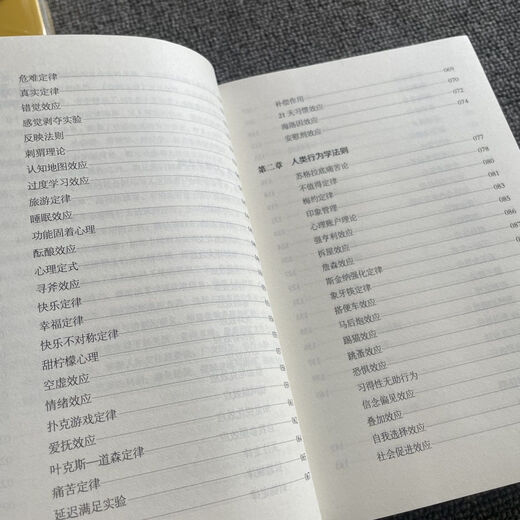 危难定律
真实定律
错觉效应
感觉剥夺实验
反映法则
刺猬理论
认知地图效应
过度学习效应
旅游定律
睡眠效应
功能固着心理
酝酿效应
心理定式
寻斧效应
快乐定律
幸福定律
快乐不对称定律
甜柠檬心理
空虚效应
情绪效应
扑克游戏定律
爱抚效应
叶克斯—道森定律
痛苦定律
延迟满足实验
069
补偿作用 070
21天习惯效应 072
海洛因效应 074
安慰剂效应
第二章 人类行为学法则 077
苏格拉底痛苦论 078
不值得定律 080
梅约定律 081
印象管理 083
心理账户理论 084
强亨利效应 085
拆屋效应 086
詹森效应 087
斯金纳强化定律
象牙筷定律
搭便车效应
马后炮效应
踢猫效应
跳蚤效应
恐惧效应
习得性无助行为
信念偏见效应
叠加效应
自我选择效应
社会促进效应